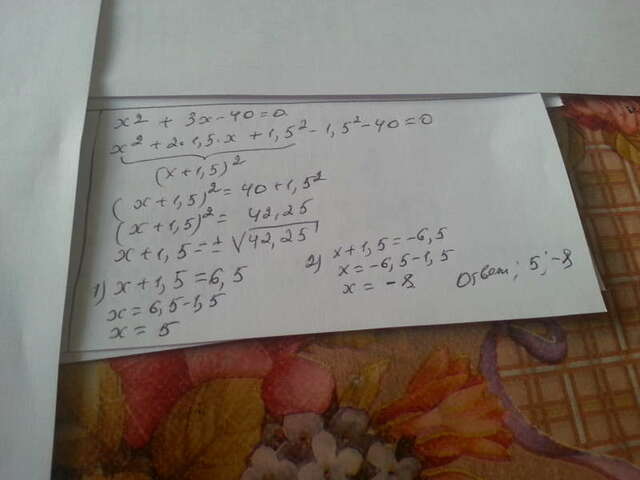 x² + 3x - 40 = 0
x² + 2 · 1,5 · x + 1,5² - 1,5² - 40 = 0
(x + 1,5)²
(x + 1,5)² = 40 + 1,5²
(x + 1,5)² = 42,25
x + 1,5 = ± √42,25
1) x + 1,5 = 6,5
x = 6,5 - 1,5
x = 5
2) x + 1,5 = -6,5
x = -6,5 - 1,5
x = -8
Ответ; 5; -8